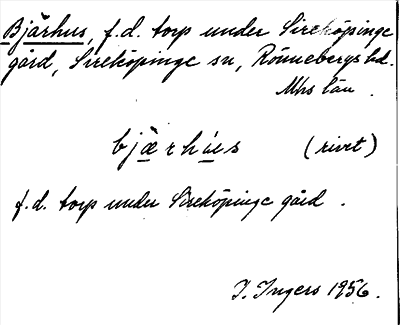 Bjärhus, f.d. torp under Sireköpinge
gård, Sireköpinge sn, Rönnebergs hd.
Mhs län.
bjæ̀rhús (rivet)
f.d. torp under Sireköpinge gård.
I. Ingers 1956.